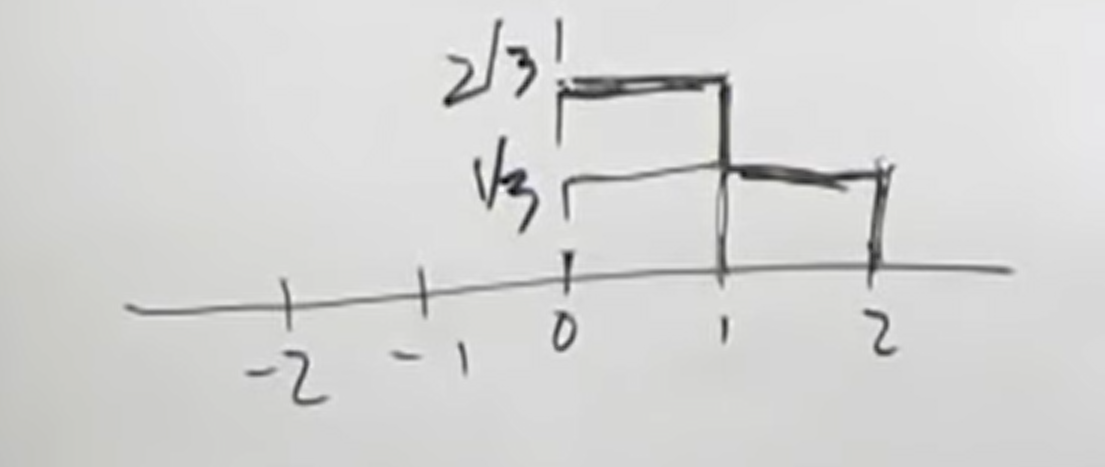 2/3
1/3
-2 -1 0 1 2